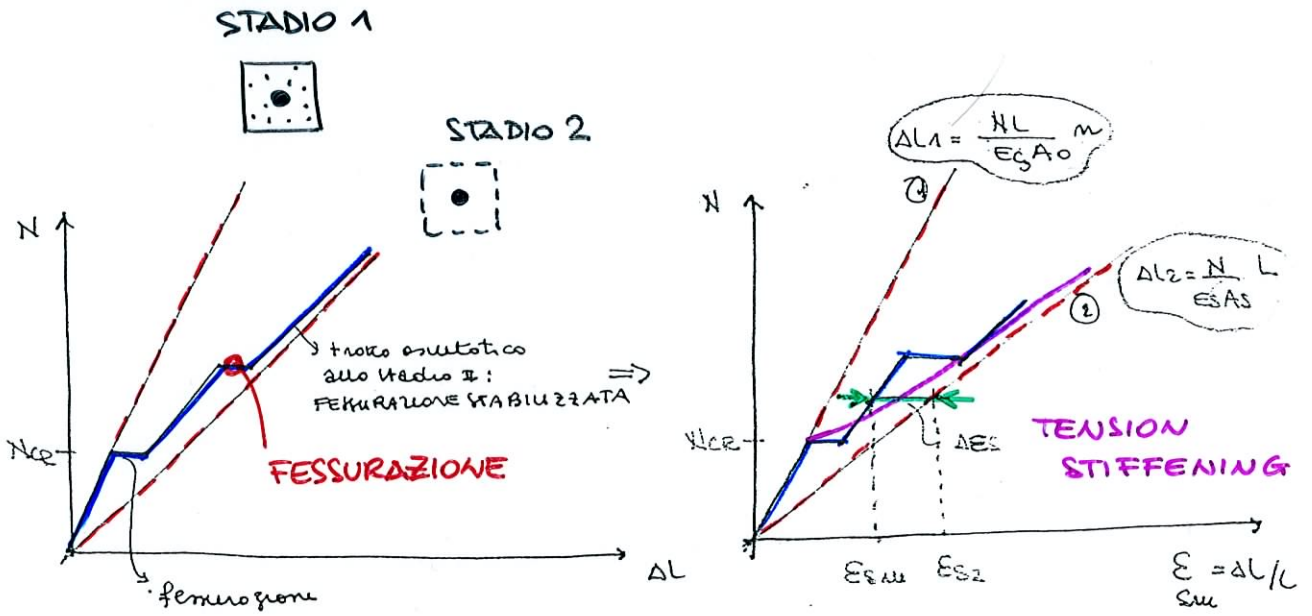 STADIO 1
STADIO 2
N
NCR
tratto asintotico
allo stadio II:
FESSURAZIONE STABILIZZATA
FESSURAZIONE
fessurazione
ΔL
⇒
ΔL1 = NL / EsA0 n
1
N
ΔL2 = N / EsAs L
2
NCR
ΔES
TENSION
STIFFENING
Esm
Es2
Esm = ΔL/L